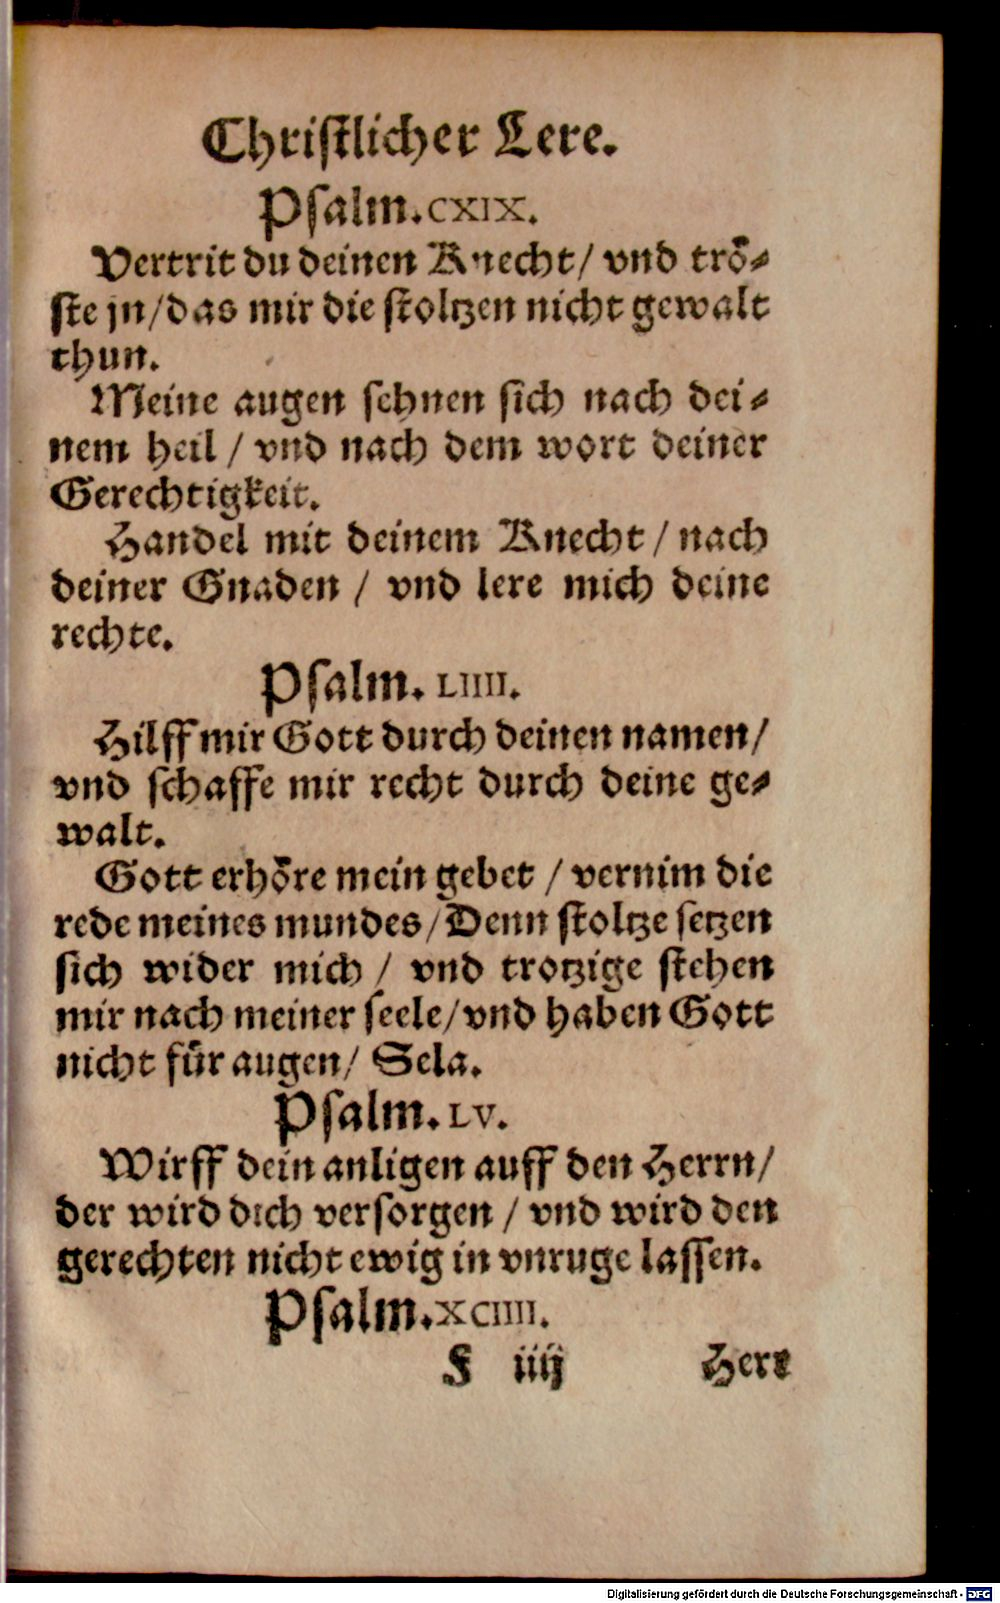 Chriſtlicher Lere.
Pſalm. CXIX.
Vertrit du deinen Knecht/ vnd trö⸗
ſte jn/das mir die ſtoltzen nicht gewalt
thun.
Meine augen ſehnen ſich nach dei⸗
nem heil / vnd nach dem wort deiner
Gerechtigkeit.
Handel mit deinem Knecht / nach
deiner Gnaden / vnd lere mich deine
rechte.
Pſalm. LIIII.
Hilff mir Gott durch deinen namen/
vnd ſchaffe mir recht durch deine ge⸗
walt.
Gott erhöre mein gebet / vernim die
rede meines mundes/Denn ſtoltze ſetzen
ſich wider mich / vnd trotzige ſtehen
mir nach meiner ſeele/vnd haben Gott
nicht für augen/ Sela.
Pſalm. LV.
Wirff dein anligen auff den Herrn/
der wird dich verſorgen / vnd wird den
gerechten nicht ewig in vnruge laſſen.
Pſalm. XCIIII.
F iiij Herr
Digitalisierung gefördert durch die Deutsche Forschungsgemeinschaft - DFG